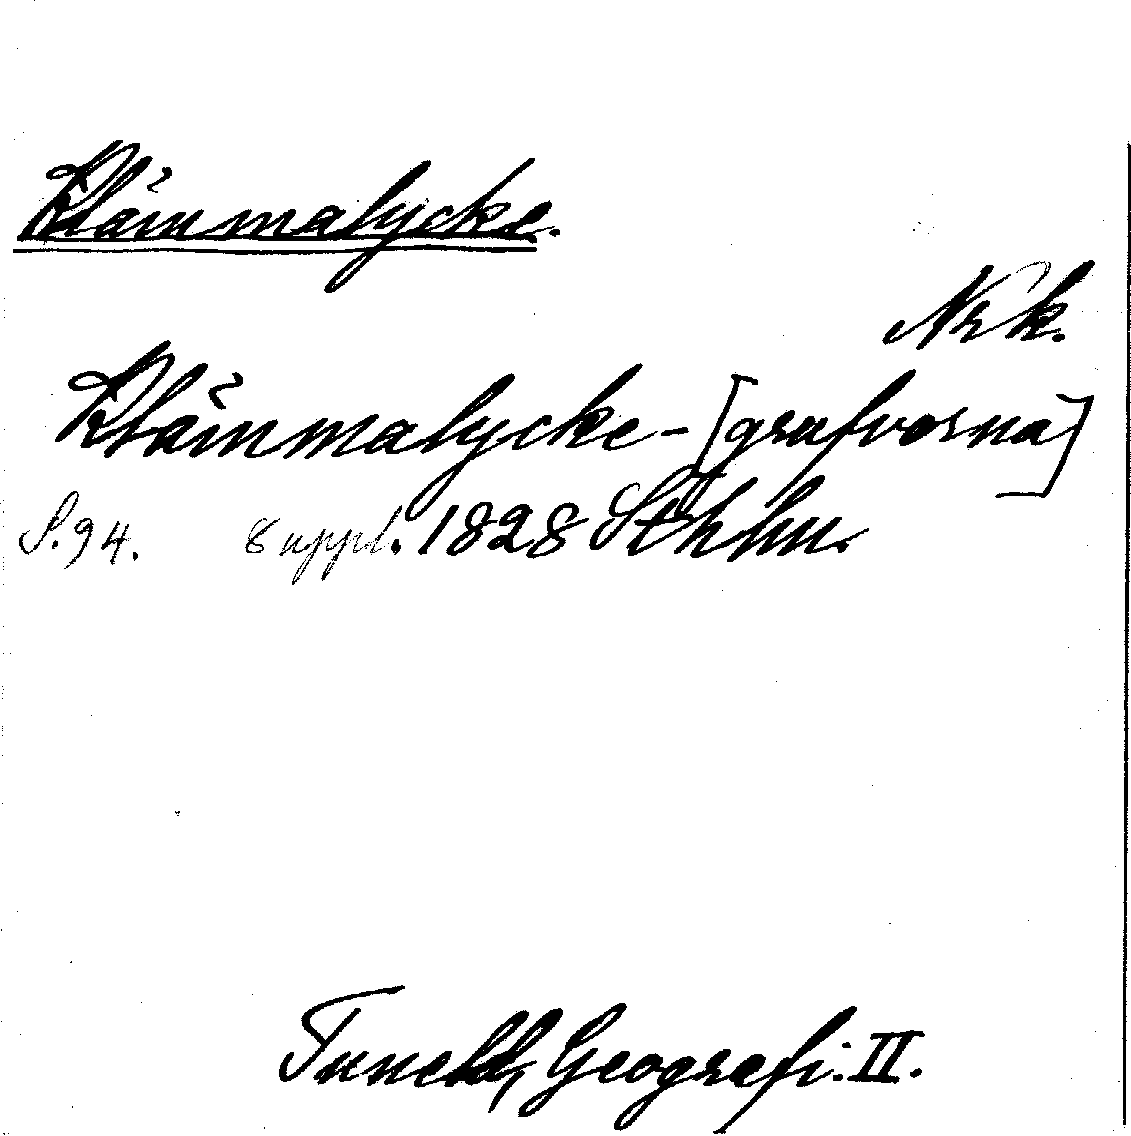 Klämmalycke.
Nrk.
Klämmalycke-[grufvorna]
S. 94. 8 uppl. 1828 Sthlm.
Tuneld, Geografi. II.